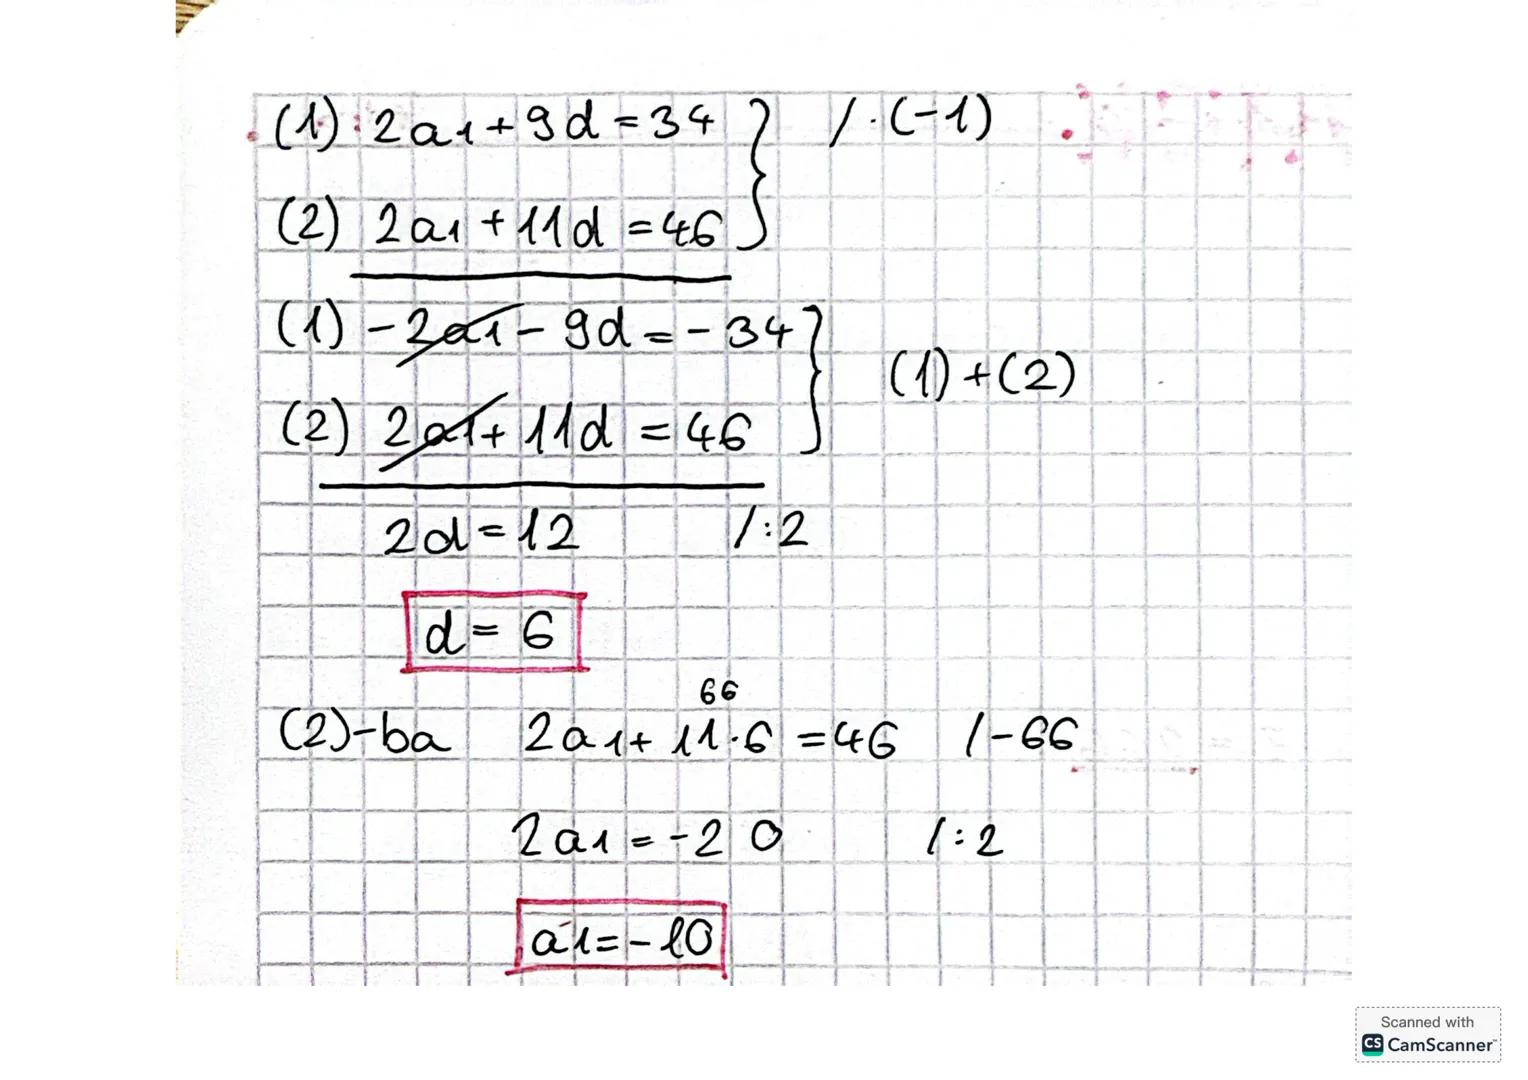 (1): 2a1+9d=34 /·(-1)
(2) 2a1+11d=46
(1) -2a1-9d=-34
(1)+(2)
(2) 2a1+11d=46
2d=12 /:2
d=6
66
(2)-ba 2a1+11·6=46 /-66
2a1=-20 /:2
a1=-10
Scanned with
CS CamScanner™